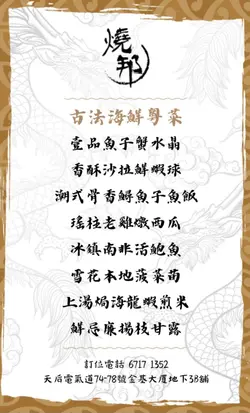 燒邦
古法海鮮粵菜
壹品魚子蟹水晶
香酥沙拉鮮蝦球
潮式骨香鱘魚子魚飯
瑤柱老雞燉西瓜
冰鎮南非活鮑魚
雪花本地菠菜苗
上湯焗海龍蝦煎米
鮮忌廉楊枝甘露
訂位電話 6717 1352
天后電氣道74-78號金基大廈地下3B舖